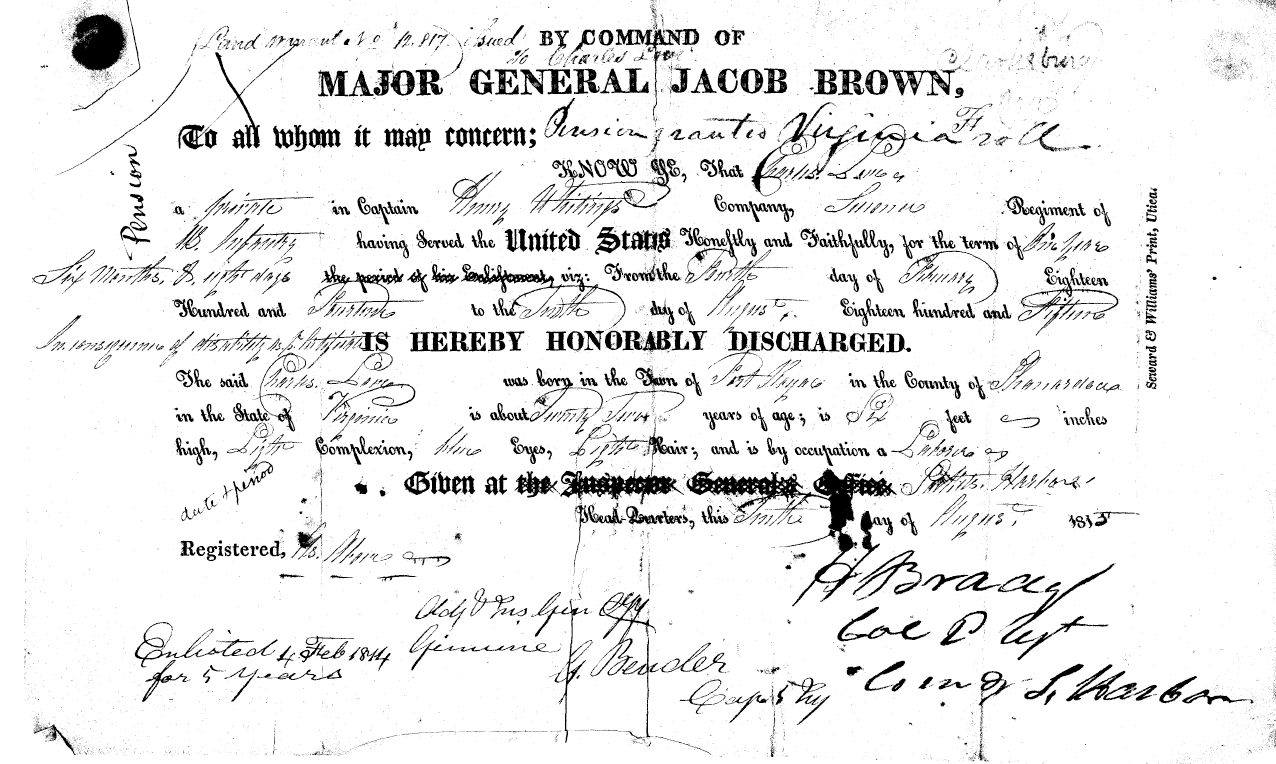 Land Warrant No 12.817 issued
to Charles Love
BY COMMAND OF
MAJOR GENERAL JACOB BROWN,
To all whom it may concern; Pension granted Virginia roll
Pension
KNOW YE, That Charles Love
a private in Captain Henry Whitings Company, Regiment of
U. Infantry having Served the United States Honestly and Faithfully, for the term of One year
Six Months, & days the period of his Enlistment, viz: From the day of February Eighteen
Hundred and Fourteen to the Tenth day of August Eighteen hundred and Fifteen
In consequence of IS HEREBY HONORABLY DISCHARGED.
The said Charles Love was born in the Town of Port in the County of Shanandoa
in the State of Virginia is about Twenty Two years of age; is Six feet inches
high, Light Complexion, blue Eyes, Light Hair; and is by occupation a
date & period
Given at the Inspector General's Office Harbor
Head-Quarters, this Tenth day of August 1815
Registered, As Above
Seward & Williams' Print, Utica.
H Brady
Col 2 Regt
Comdg S. Harbor
Adj & Ins Gen Off
Genuine
G. Bender
Capt 5 Inf
Enlisted 4 Feb 1814
for 5 Years